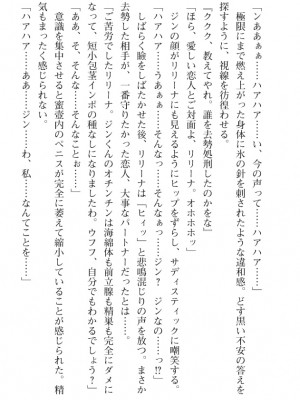 「ンああぁぁ……ハアハア……い、今の声って……ハアハア……」
　極限にまで燃え上がった身体に氷の針を刺されたような違和感。どす黒い不安の答えを
探すように、視線を彷徨わせる。
「ククク、教えてやれ。誰を去勢処刑したのかをな」
「ほら、愛しい恋人とご対面よ、リリーナ。オホホホッ」
　ジンの顔がリリーナにも見えるようにヒップをずらし、サディスティックに嘲笑する。
「ハアハア……うああぁ……そんなっ……そんなぁっ……ジン？　ジンなの……っ？」
　しばらく瞼をしばたかせた後、リリーナは「ヒィッ」と悲鳴混じりの声を放つ。まさか
去勢した相手が、一番守りたかった恋人、大事なパートナーだったとは……。
「ご苦労でしたリリーナ。ジンくんのオチンチンは海綿体も前立腺も精巣も完全にダメに
なって、短小包茎インポの種なしになりましたわ。ウフフ、自分でもわかるでしょう？」
「あ、そ、そんな……そんなことぉ……」
　意識を集中させると蜜壺内のペニスが完全に萎えて縮小していることが感じられた。精
気もまったく感じられない。
「ハアハア……ああ……ジン……わ、私……なんてことを……」